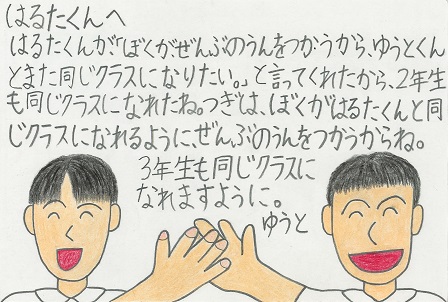 はるたくんへ
はるたくんが「ぼくがぜんぶのうんをつかうから、ゆうとくん
とまた同じクラスになりたい。」と言ってくれたから、2年生
も同じクラスになれたね。つぎは、ぼくがはるたくんと同
じクラスになれるように、ぜんぶのうんをつかうからね。
3年生も同じクラスに
なれますように。
ゆうと